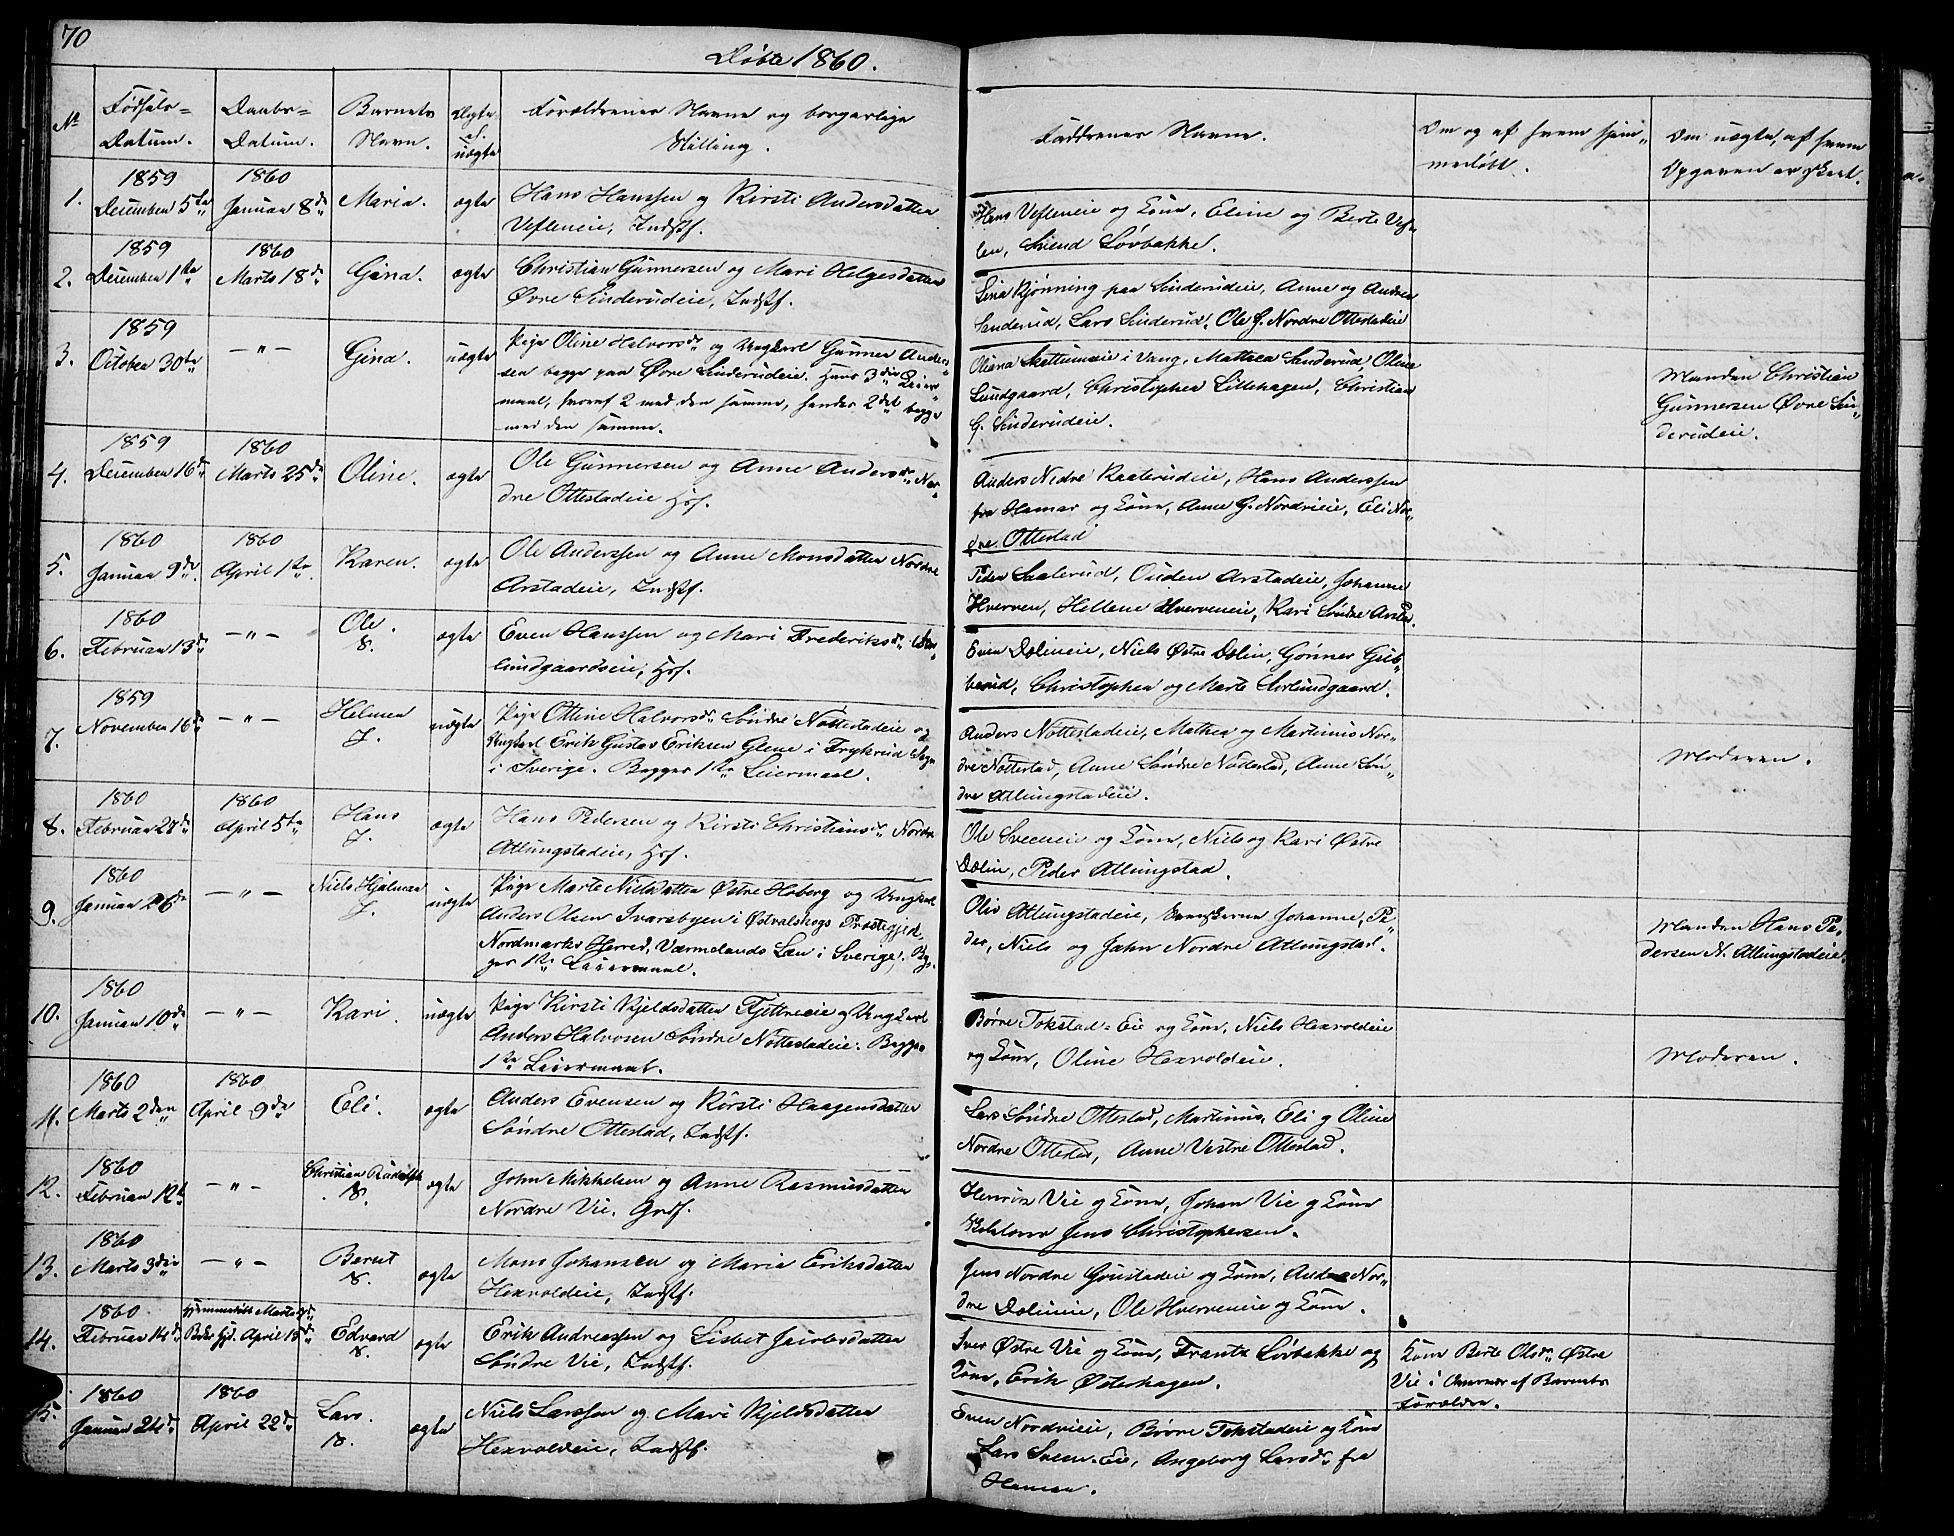 70
Døbte 1860.
No
Fødsels-
Datum.
Daabs-
Datum.
Barnets
Navn.
Ægte
el.
uægte
Forældrenes Navne og borgerlige
Stilling.
Faddrenes Navne.
Om og af hvem hjem-
medøbt.
Om uægte, af hvem
Opgaven er skeet.
1. 1859
December 5te
1860
Januar 8de
Maria.
ægte
Hans Hanssen og Kirsti Andersdatter
Vefleneie, Indstf.
Hans Vefleneie og Kone, Eline og Berte Vef-
len, Svend Løvbakke.
2. 1859
December 1ste
1860
Marts 18de
Gina.
ægte
Christian Gunnersen og Mari Helgesdatter
Øvre Sinderudeie, Indstf.
Lina Kjønning paa Sinderudeie, Anne og Andrea
Sanderud, Lars Sinderud, Ole G. Nordre Ottestadeie
3. 1859
October 30te
— " —
Gina.
uægte
Pige Oline Halvorsdr og Ungkarl Gunner Ander-
sen begge paa Øvre Sinderudeie. Hans 3die Leier-
maal, hvoraf 2 med den samme, hendes 2det begge
med den samme.
Oliana Skattumeie i Vang, Mathea Sanderud, Oline
Sundgaard, Christopher Lillehagen, Christian
G. Sinderudeie.
Manden Christian
Gunnersen Øvre Sin-
derudeie.
4. 1859
December 16de
1860
Marts 25de
Oline.
ægte
Ole Gunnersen og Anne Andersdr Nor-
dre Ottestadeie Hsf.
Anders Nedre Kaaterudeie, Hans Anderssen
fra Hamar og Kone, Anne G. Nordvieie, Eli Nor-
dre Ottestad
5. 1860
Januar 9de
1860
April 1ste
Karen.
ægte
Ole Anderssen og Anne Monsdatter Nordre
Arstadeie, Indstf.
Peder Saalerud, Ouden Arstadeie, Johanne
Hverven, Hellene Hverveneie, Kari Søndre Arstad.
6. 1860
Februar 13de
— " —
Ole.
8.
ægte
Even Hanssen og Mari Frederiksdr Sør-
lundgaardseie, Hsf.
Even Dølineie, Niels Østre Dølin, Gønner Gub-
berud, Christopher og Marte Sørlundgaard.
7. 1859
November 16de
— " —
Helmer
J.
uægte
Pige Otline Halvorsdr Søndre Nøttestadeie og
Ungkarl Erik Gustav Eriksen Glene i Frykerud Sogn
i Sverige. Begges 1ste Leiermaal.
Anders Nøttestadeie, Mathea og Martinus Nor-
dre Nøttestad, Anne Søndre Nøttestad, Anne Søn-
dre Atlungstadeie.
Moderen.
8. 1860
Februar 28de
1860
April 5te
Hans
J.
ægte
Hans Pedersen og Kirsti Christiansdr Nordre
Atlungstadeie, Hsf.
Ole Sveeneie og Kone, Niels og Kari Østre
Dølin, Peder Atlungstad.
9. 1860
Januar 26de
— " —
Niels Hjalmar
J.
uægte
Pige Marte Nielsdatter Østre Hoberg og Ungkarl
Anders Olsen Ivarsbyen i Østvalskogs Præstegjeld,
Nordmarks Herred, Værmelands Læn i Sverige. Beg-
ges 1ste Leiermaal.
Oliv Atlungstadeie, Johanne, Pe-
der, Niels og Jahn Nordre Atlungstad.
Manden Hans Pe-
dersen N. Atlungstadeie.
10. 1860
Januar 10de
— " —
Kari.
uægte
Pige Kirsti Kjeldsdatter Fjettreeie og Ungkarl
Anders Halvorsen Søndre Nøttestadeie. Begges
1ste Leiermaal.
Børre Tokstad-Eie og Kone, Niels Hexvoldeie
og Kone, Oline Hexvoldeie.
Moderen.
11. 1860
Marts 2den
1860
April 9de
Eli.
ægte
Anders Evensen og Kirsti Haagensdatter
Søndre Ottestad, Indstf.
Lars Søndre Ottestad, Martinus, Eli og Oline
Nordre Ottestad, Anne Vestre Ottestad.
12. 1860
Februar 12te
— " —
Christian Rudolph
8.
ægte
John Mikkelsen og Anne Rasmusdatter
Nordre Vie, Grdf.
Henrik Vie og Kone, Johan Vie og Kone
Jens Christophersen.
13. 1860
Marts 3die
— " —
Bernt
8.
ægte
Mons Johansen og Maria Eriksdatter
Hexvoldeie, Indstf.
Jens Nordre Gaustadeie og Kone, Anders Nor-
dre Dølineie, Ole Hverveneie og Kone.
14. 1860
Februar 14de
Hjemmedøbt Marts
April 15de
Edvard
8.
ægte
Erik Andreassen og Lisbet Jacobsdatter
Søndre Vie, Indstf.
Iver Østre Vie og Kone, Frantz Løvbakke og
Kone, Erik Østerhagen.
Kone Berte Olsdr Østre
Vie i Nærvær af Barnets
Forældre.
15. 1860
Januar 24de
1860
April 22de
Lars.
8.
ægte
Niels Larssen og Mari Kjeldsdatter
Hexvoldeie, Indstf.
Even Nordvieie, Børre Tokstadeie og Kone
Lars Sveen-Eie, Angeborg Larsdr fra
Hamar.